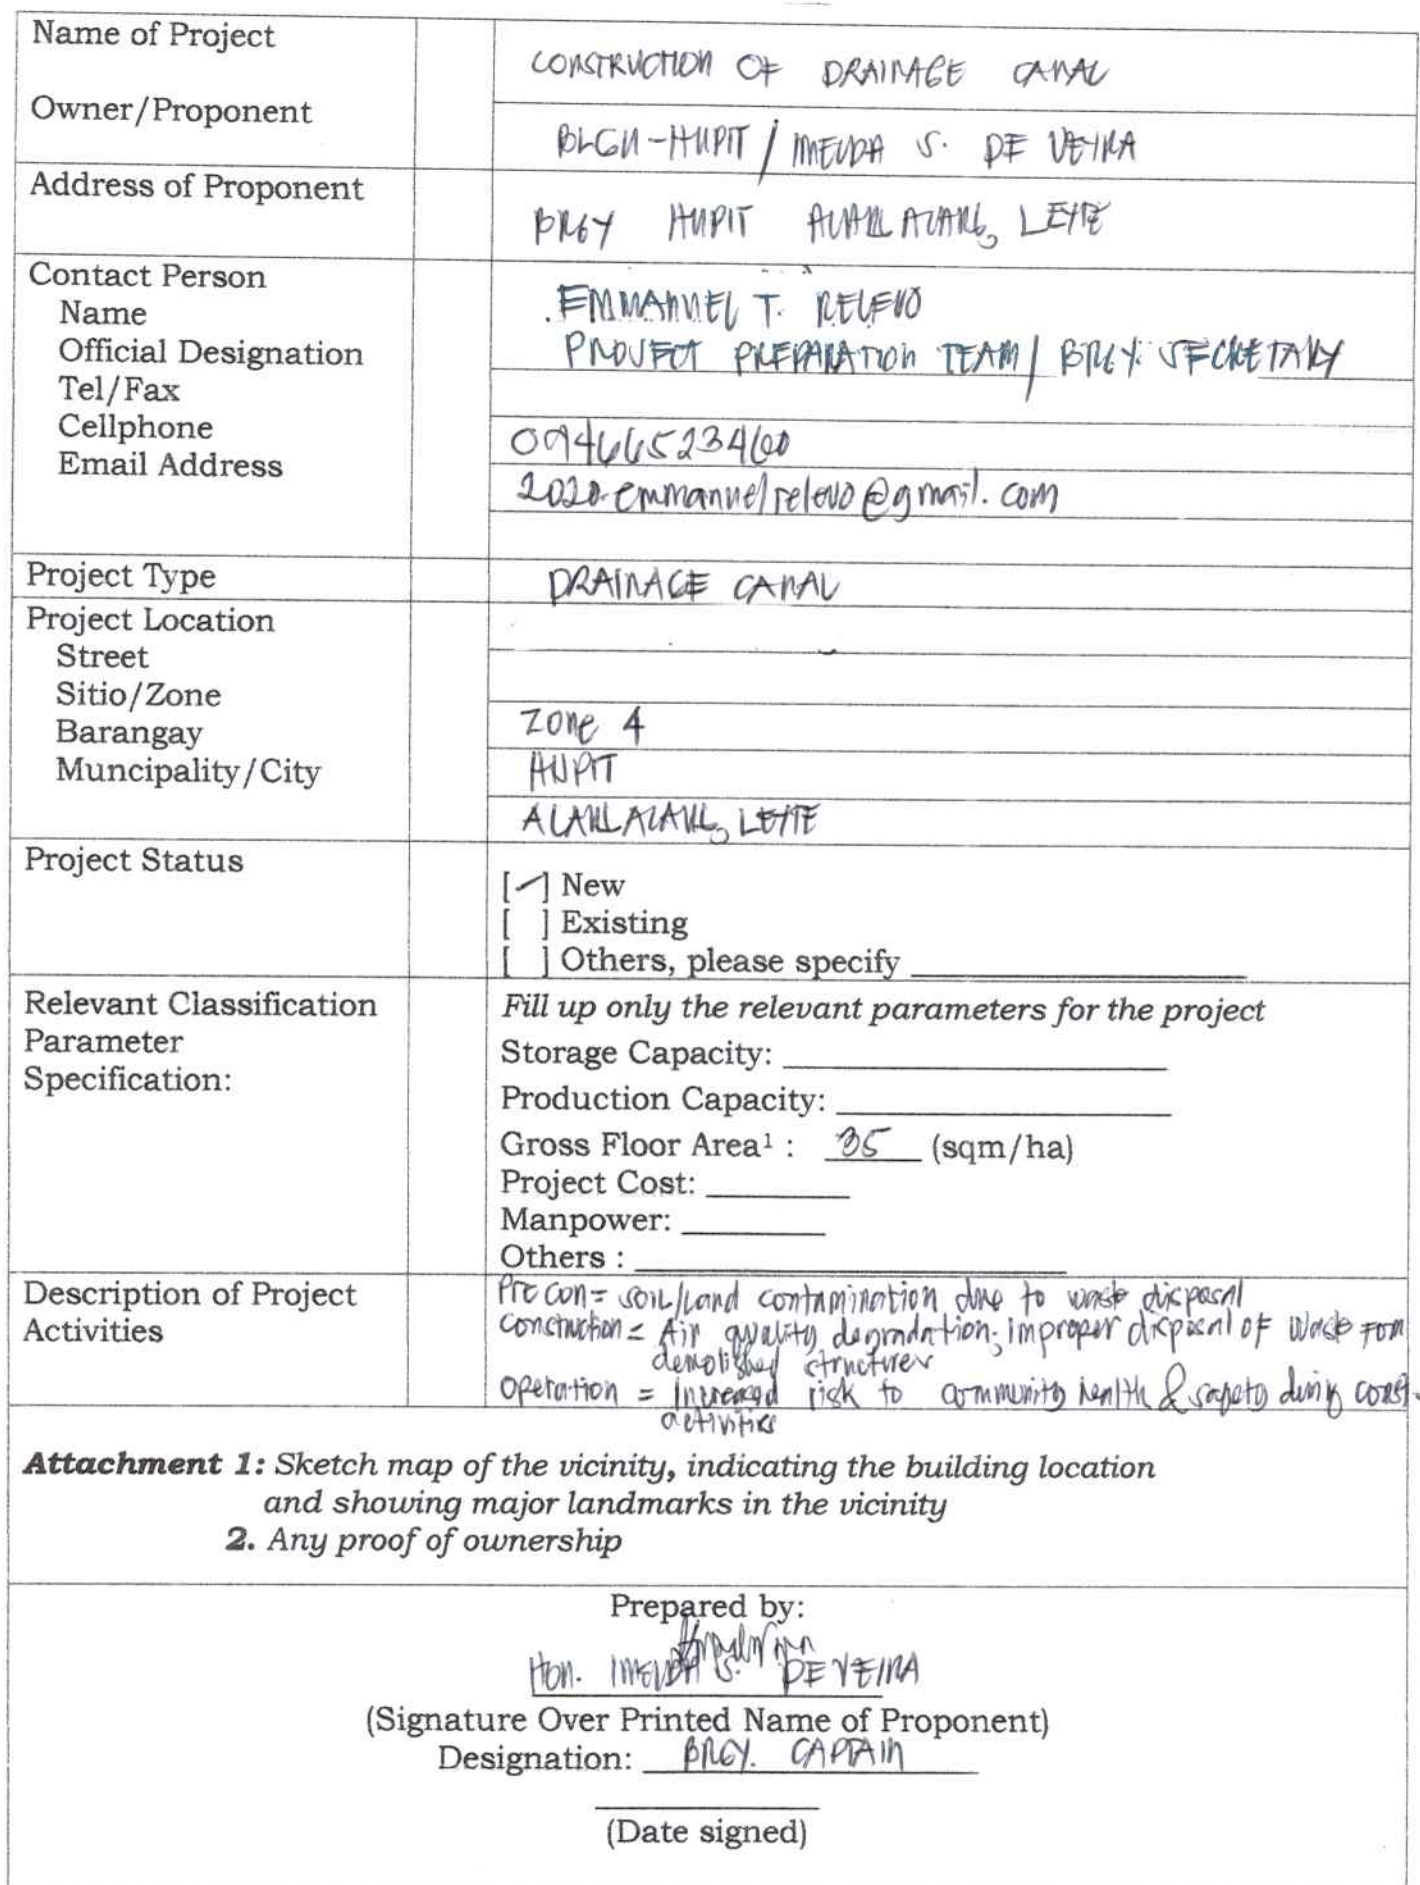 Name of Project
CONSTRUCTION OF DRAINAGE CANAL
Owner/Proponent
BLGU-HUPIT / IMELDA S. DE VEYRA
Address of Proponent
BRGY HUPIT ALANGALANG, LEYTE
Contact Person
Name
EMMANUEL T. RELEVO
Official Designation
PROJECT PREPARATION TEAM / BRGY. SECRETARY
Tel/Fax
Cellphone
09466523460
Email Address
2020.emmanuelrelevo@gmail.com
Project Type
DRAINAGE CANAL
Project Location
Street
Sitio/Zone
Zone 4
Barangay
HUPIT
Muncipality/City
ALANGALANG, LEYTE
Project Status
[✓] New
[ ] Existing
[ ] Others, please specify
Relevant Classification
Parameter
Specification:
Fill up only the relevant parameters for the project
Storage Capacity:
Production Capacity:
Gross Floor Area¹ : 35 (sqm/ha)
Project Cost:
Manpower:
Others :
Description of Project
Activities
Pre con = soil/land contamination due to waste disposal
construction = Air quality degradation, improper disposal of waste from
demolished structures
operation = increased risk to community health & safety during const.
activities
Attachment 1: Sketch map of the vicinity, indicating the building location
and showing major landmarks in the vicinity
2. Any proof of ownership
Prepared by:
Hon. IMELDA S. DE VEYRA
(Signature Over Printed Name of Proponent)
Designation: BRGY. CAPTAIN
(Date signed)